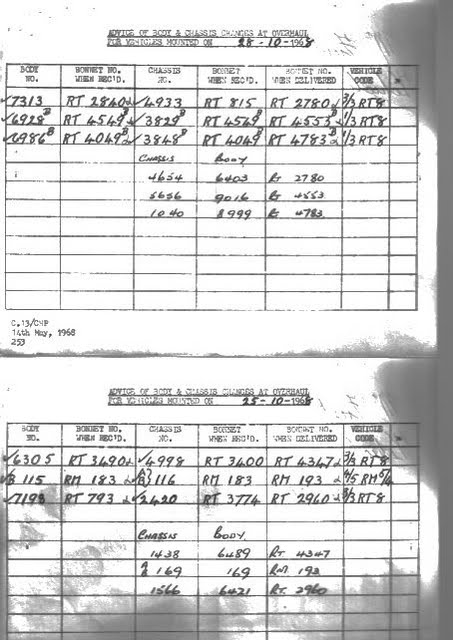 ADVICE OF BODY & CHASSIS CHANGES AT OVERHAUL
FOR VEHICLES MOUNTED ON 28-10-1968
BODY NO. BONNET NO. WHEN REC'D. CHASSIS NO. BONNET WHEN REC'D. BONNET NO. WHEN DELIVERED VEHICLE CODE
✓7313 RT 2840 ✓4933 RT 815 RT 2780 3/3 RT8
✓6928B RT 4549B ✓3829B RT 4549B RT 4553B /3 RT8
✓6986B RT 4049B ✓3848B RT 4049B RT 4783B /3 RT8
CHASSIS BODY
4654 6403 RT 2780
5656 9016 RT 4553
1040 8999 RT 4783
C.13/CHP
14th May, 1968
253
ADVICE OF BODY & CHASSIS CHANGES AT OVERHAUL
FOR VEHICLES MOUNTED ON 25-10-1968
BODY NO. BONNET NO. WHEN REC'D. CHASSIS NO. BONNET WHEN REC'D. BONNET NO. WHEN DELIVERED VEHICLE CODE
✓6305 RT 3490 ✓4998 RT 3400 RT 4347 3/3 RT8
✓B 115 RM 183 A B 116 RM 183 RM 193 4/5 RM 5/4
✓7193 RT 793 ✓2420 RT 3774 RT 2960 3/3 RT8
CHASSIS BODY
1438 6489 RT 4347
169 169 RM 193
1566 6421 RT 2960